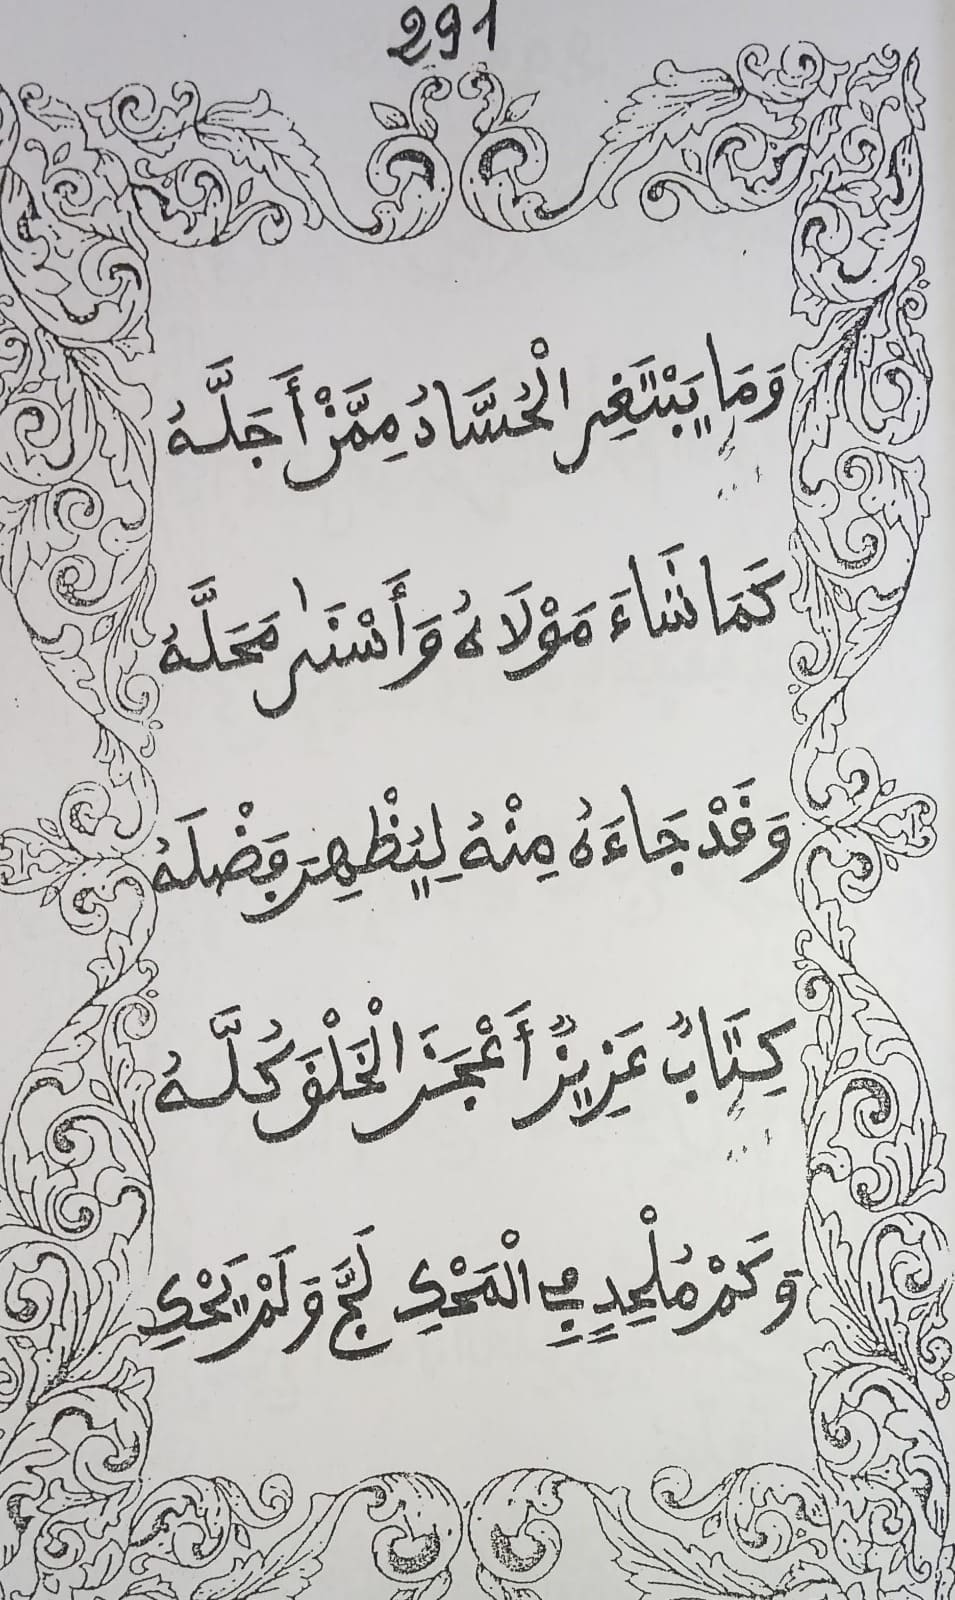 291
وَمَا يَبْتَغِي الْحُسَّادُ مِمَّنْ أَجَلَّهُ
كَمَا شَاءَ مَوْلَاهُ وَأَسْنَىٰ مَحَلَّهُ
وَقَدْ جَاءَهُ مِنْهُ لِيُظْهِرَ فَضْلَهُ
كِتَابٌ عَزِيزٌ أَعْجَزَ الْخَلْقَ كُلَّهُ
وَكَمْ مُلْحِدٍ فِي لَجَّ وَلَمْ